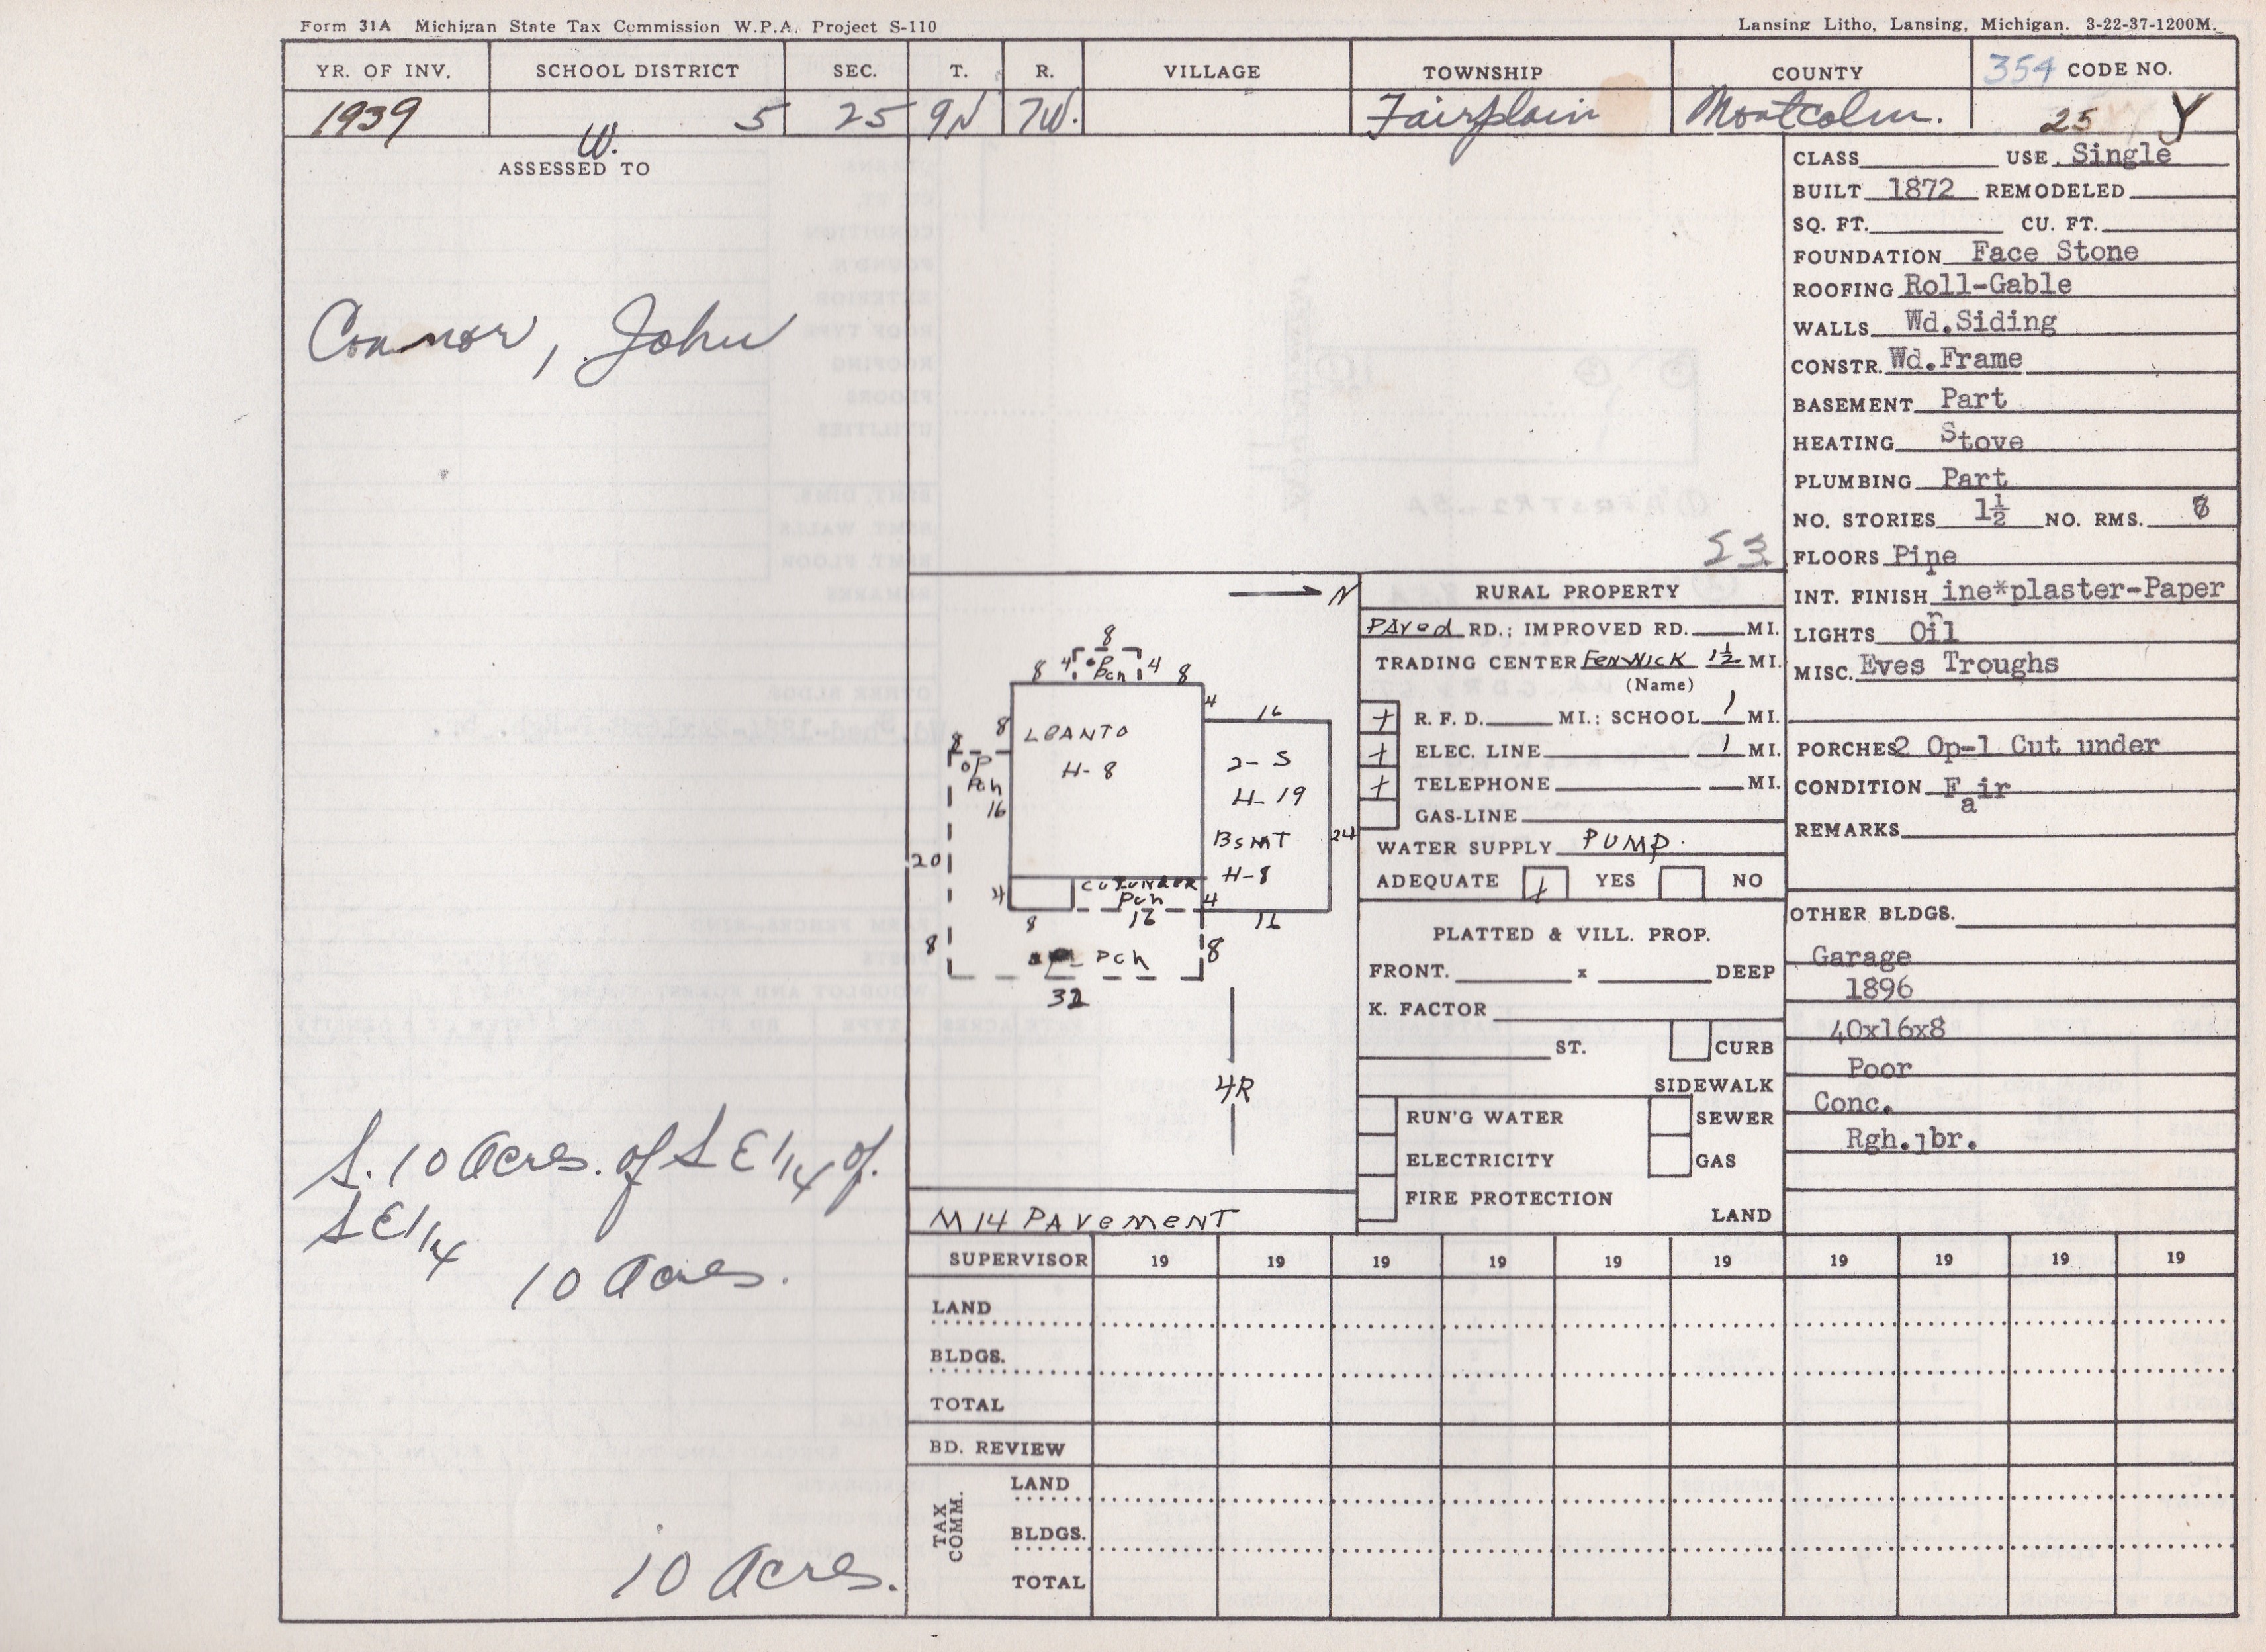 Form 31A Michigan State Tax Commission W.P.A. Project S-110
Lansing Litho, Lansing, Michigan. 3-22-37-1200M.
YR. OF INV. SCHOOL DISTRICT SEC. T. R. VILLAGE TOWNSHIP COUNTY 354 CODE NO.
1939 W. 5 25 9N 7W. Fairplain Montcalm. 25 Y
ASSESSED TO
Connor, John
S. 10 Acres. of S E 1/4 of.
S E 1/4
10 Acres.
10 Acres.
53
N
8
8 4 op Pch 4 8
4
16
8 LEANTO
H-8
8
op
Pch
16
2-S
H-19
BsMT
H-8
24
20
4
CutunDER
Pch
8 12 4 16
8 Pch 8
32
4R
M14 PAVEMENT
RURAL PROPERTY
PAved RD.; IMPROVED RD. MI.
TRADING CENTER FENWICK 1½ MI.
(Name)
+ R. F. D. MI.; SCHOOL 1 MI.
+ ELEC. LINE 1 MI.
+ TELEPHONE MI.
GAS-LINE
WATER SUPPLY PUMP.
ADEQUATE + YES NO
PLATTED & VILL. PROP.
FRONT. x DEEP
K. FACTOR
ST. CURB
SIDEWALK
RUN'G WATER SEWER
ELECTRICITY GAS
FIRE PROTECTION
LAND
CLASS USE Single
BUILT 1872 REMODELED
SQ. FT. CU. FT.
FOUNDATION Face Stone
ROOFING Roll-Gable
WALLS Wd.Siding
CONSTR. Wd.Frame
BASEMENT Part
HEATING Stove
PLUMBING Part
NO. STORIES 1½ NO. RMS.
FLOORS Pine
INT. FINISH Pine*plaster-Paper
LIGHTS Oil
MISC. Eves Troughs
PORCHES 2 Op-1 Cut under
CONDITION Fair
REMARKS
OTHER BLDGS.
Garage
1896
40x16x8
Poor
Conc.
Rgh.lbr.
SUPERVISOR 19 19 19 19 19 19 19 19 19 19
LAND
BLDGS.
TOTAL
BD. REVIEW
TAX COMM.
LAND
BLDGS.
TOTAL